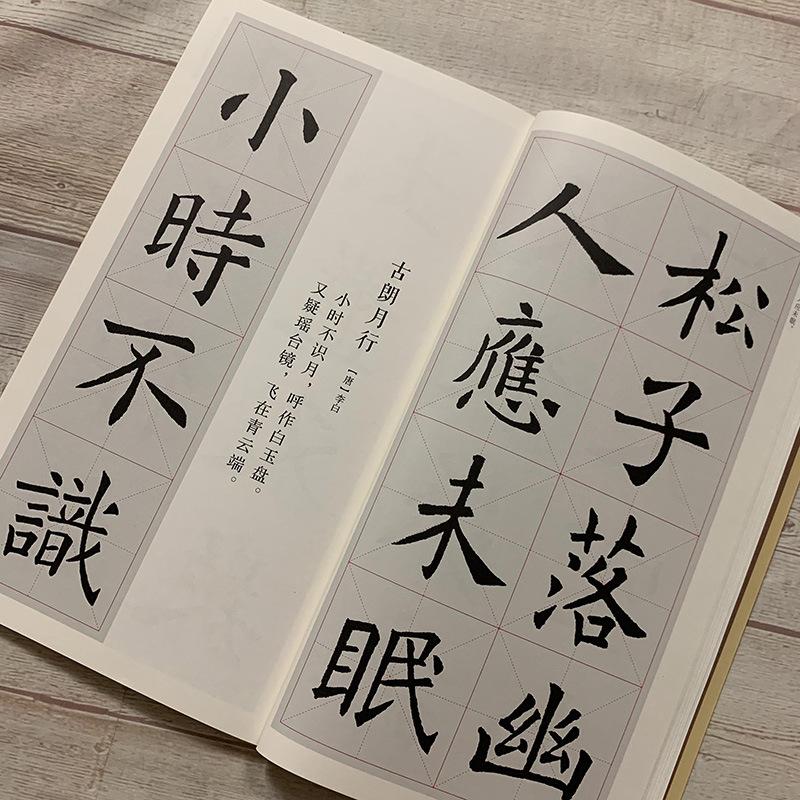 未眠。
松子落幽
人應未眠
古朗月行
【唐】李白
小时不识月，呼作白玉盘。
又疑瑶台镜，飞在青云端。
小時不識